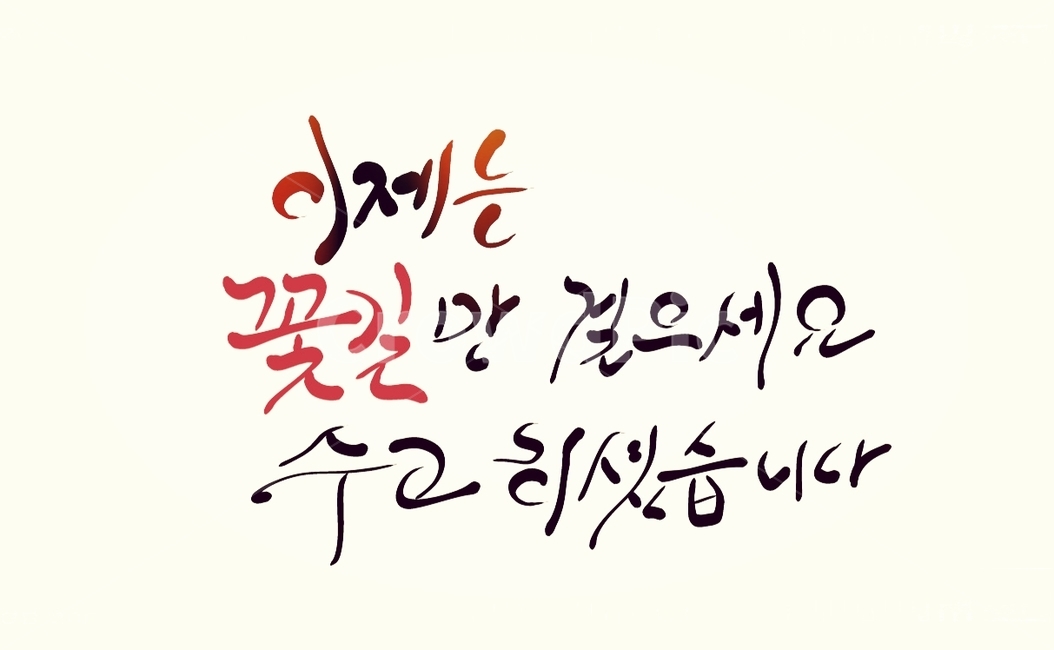 이제는
꽃길만 걸으세요
수고하셨습니다